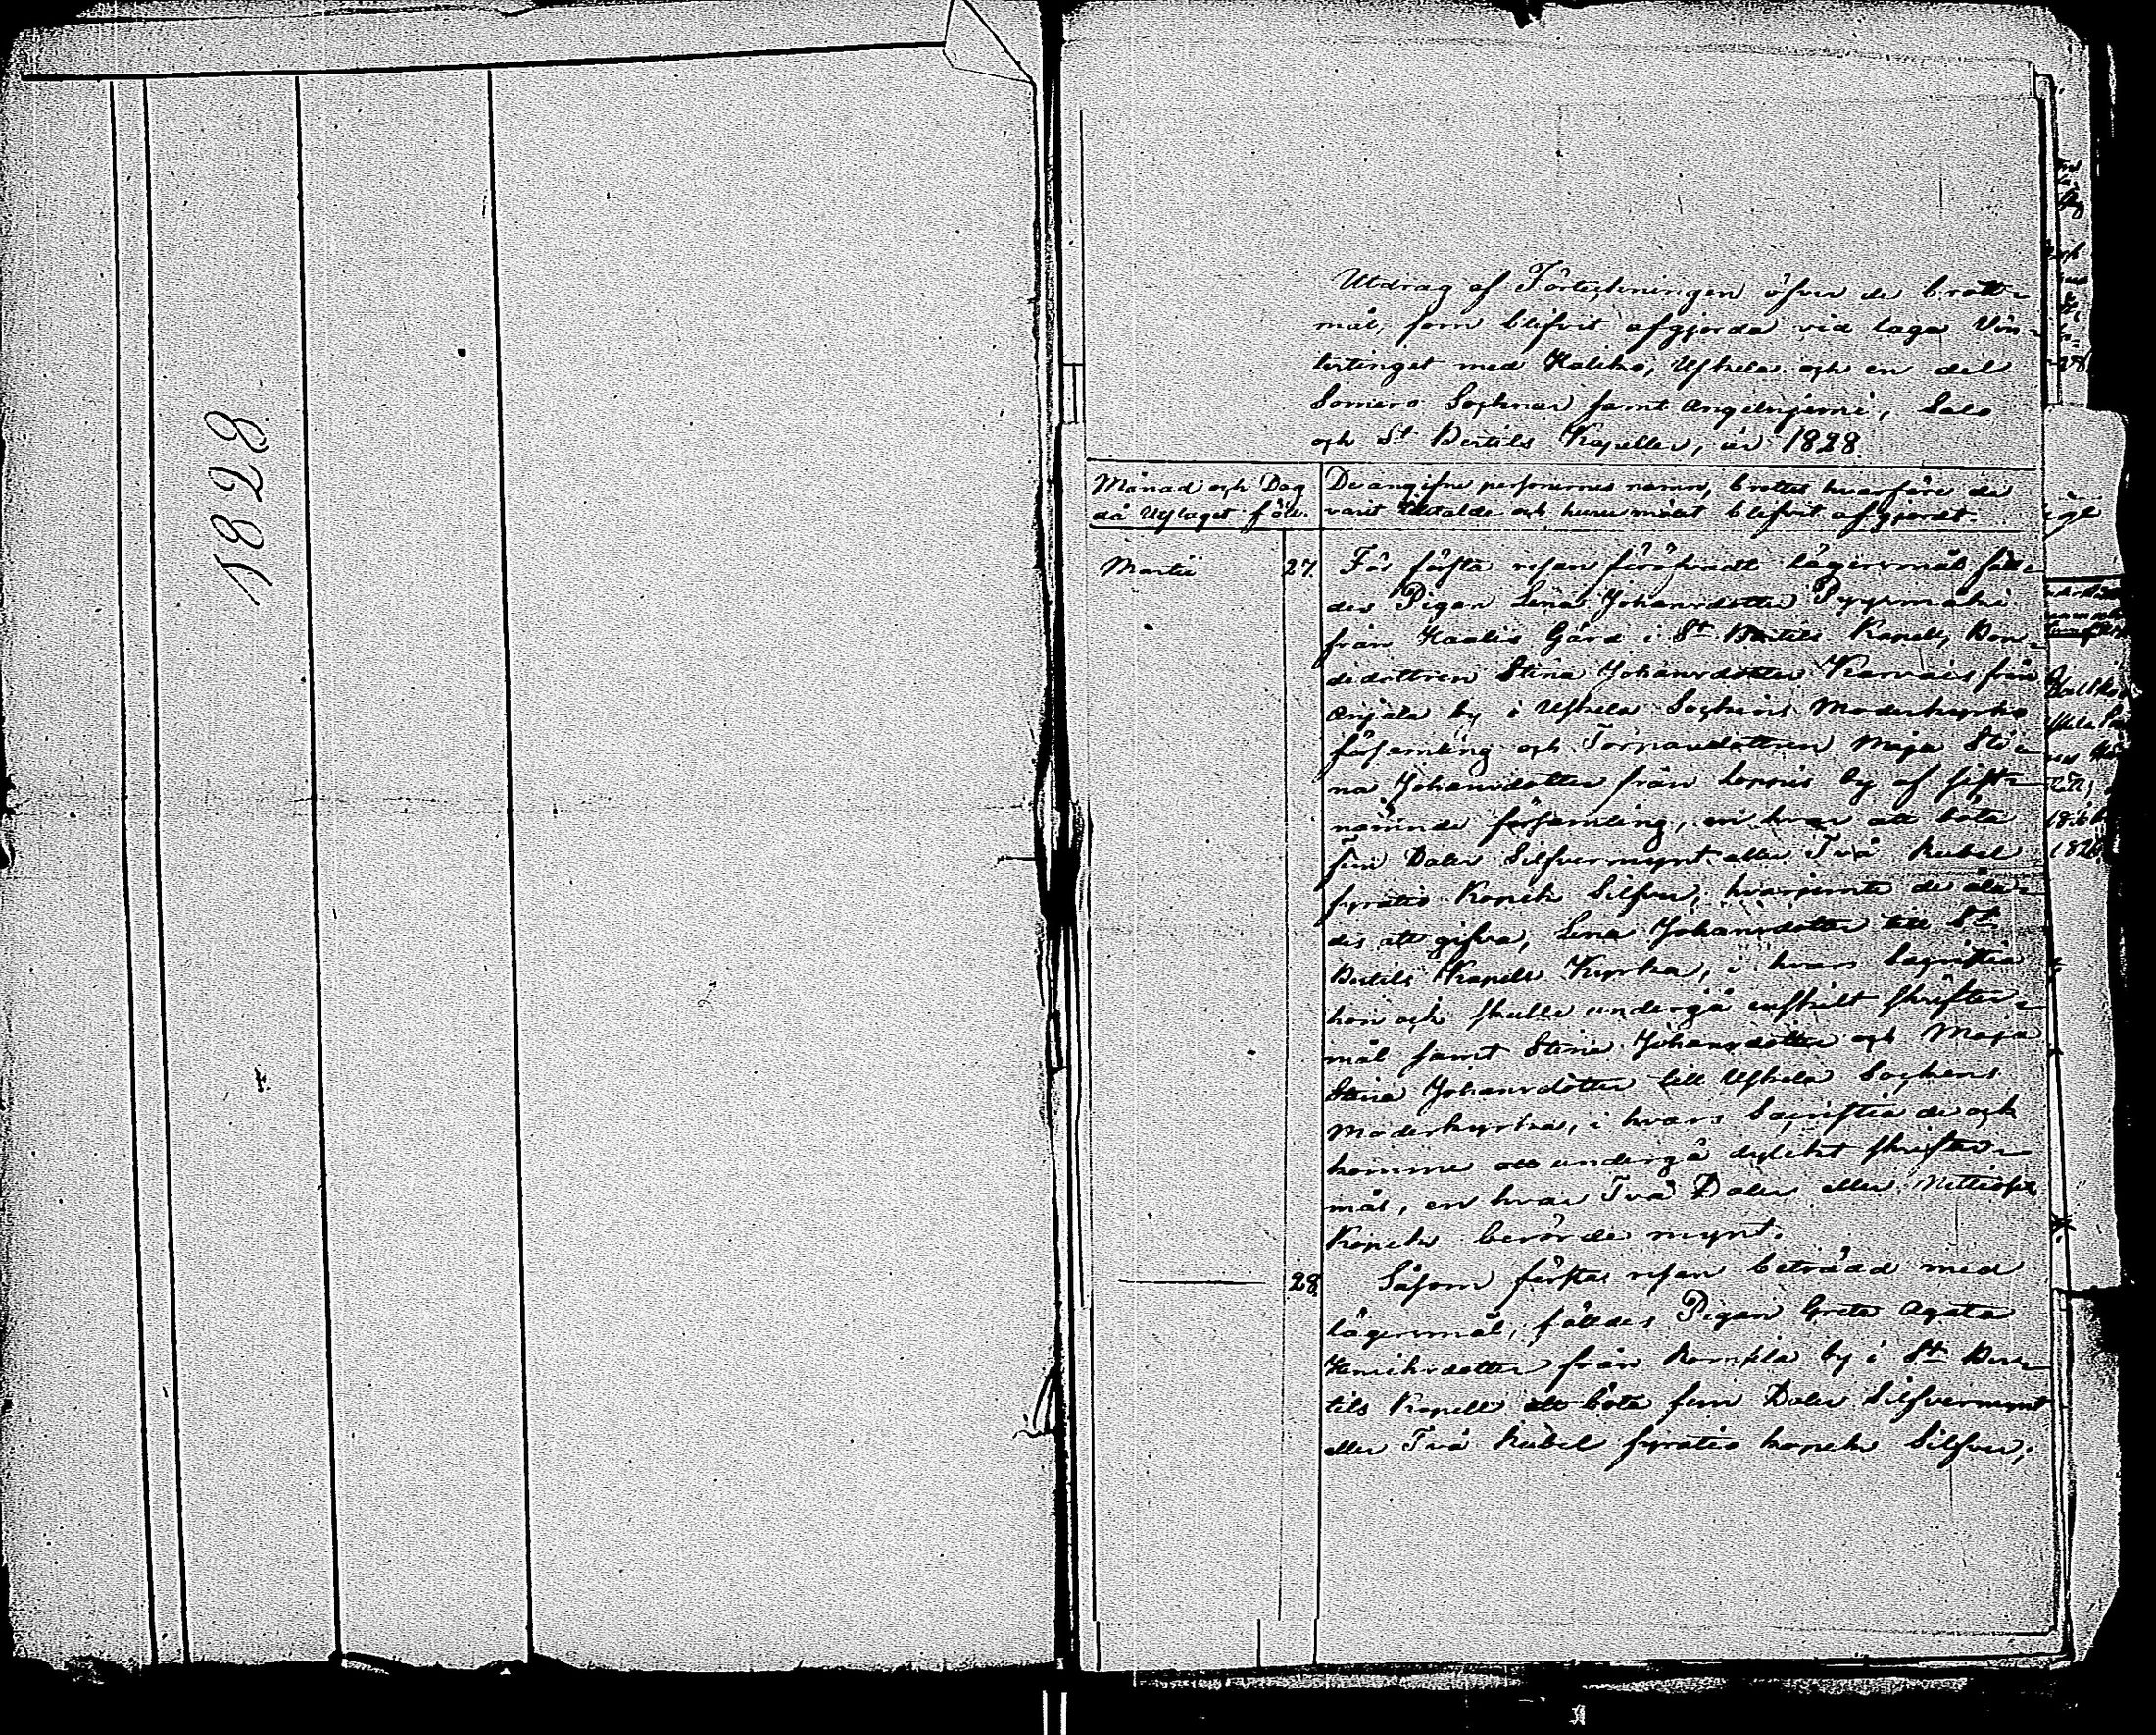 1828
Utdrag af Förteckningen öfver de brott-
mål, som blifvit afgjorde vid laga Vin-
tertinget med Haliko, Uskela och en del
Somero Socknar samt Angelniemi, Salo
och St Bertils Kapeller, år 1828
Månad och Dag
då Utslaget föll.
De angifne personernes namn, brottet hvarföre de
varit tilltalde och huru målet blifvit afgjordt.
Martii 27. För första resan föröfvadt lägersmål fäll-
des Pigan Lena Johansdotter Pyymäki
från Kaalis Gård i St Bertils Kapell, Bon-
dedottren Stina Johansdotter Karvais från
Anjala by i Uskela Sockens Moderkyrko
församling och Torparedottren Maja Sti-
na Johansdotter från by af sist-
nämnde församling, en hvar att böta
fem Daler Silfvermynt eller Två Rubel
fyratio Kopek Silfver, hvarjemte de ålä-
des att gifva, Lena Johansdotter till St
Bertils Kapells Kyrka, i hvars Sacristia
hon och skulle undergå enskilt skrifter-
mål samt Stina Johansdotter och Maja
Stina Johansdotter till Uskela Sockens
Moderkyrka, i hvars Sacristia de och
komme att undergå dylikt skrifter-
mål, en hvar Två Daler eller Nittiosex
Kopek berörde mynt.
28. Såsom första resan beträdd med
lägersmål, fälldes Pigan Greta Agata
Henriksdotter från by i St Ber-
tils Kapell att böta fem Daler Silfvermynt
eller Två Rubel fyratio kopek Silfver,